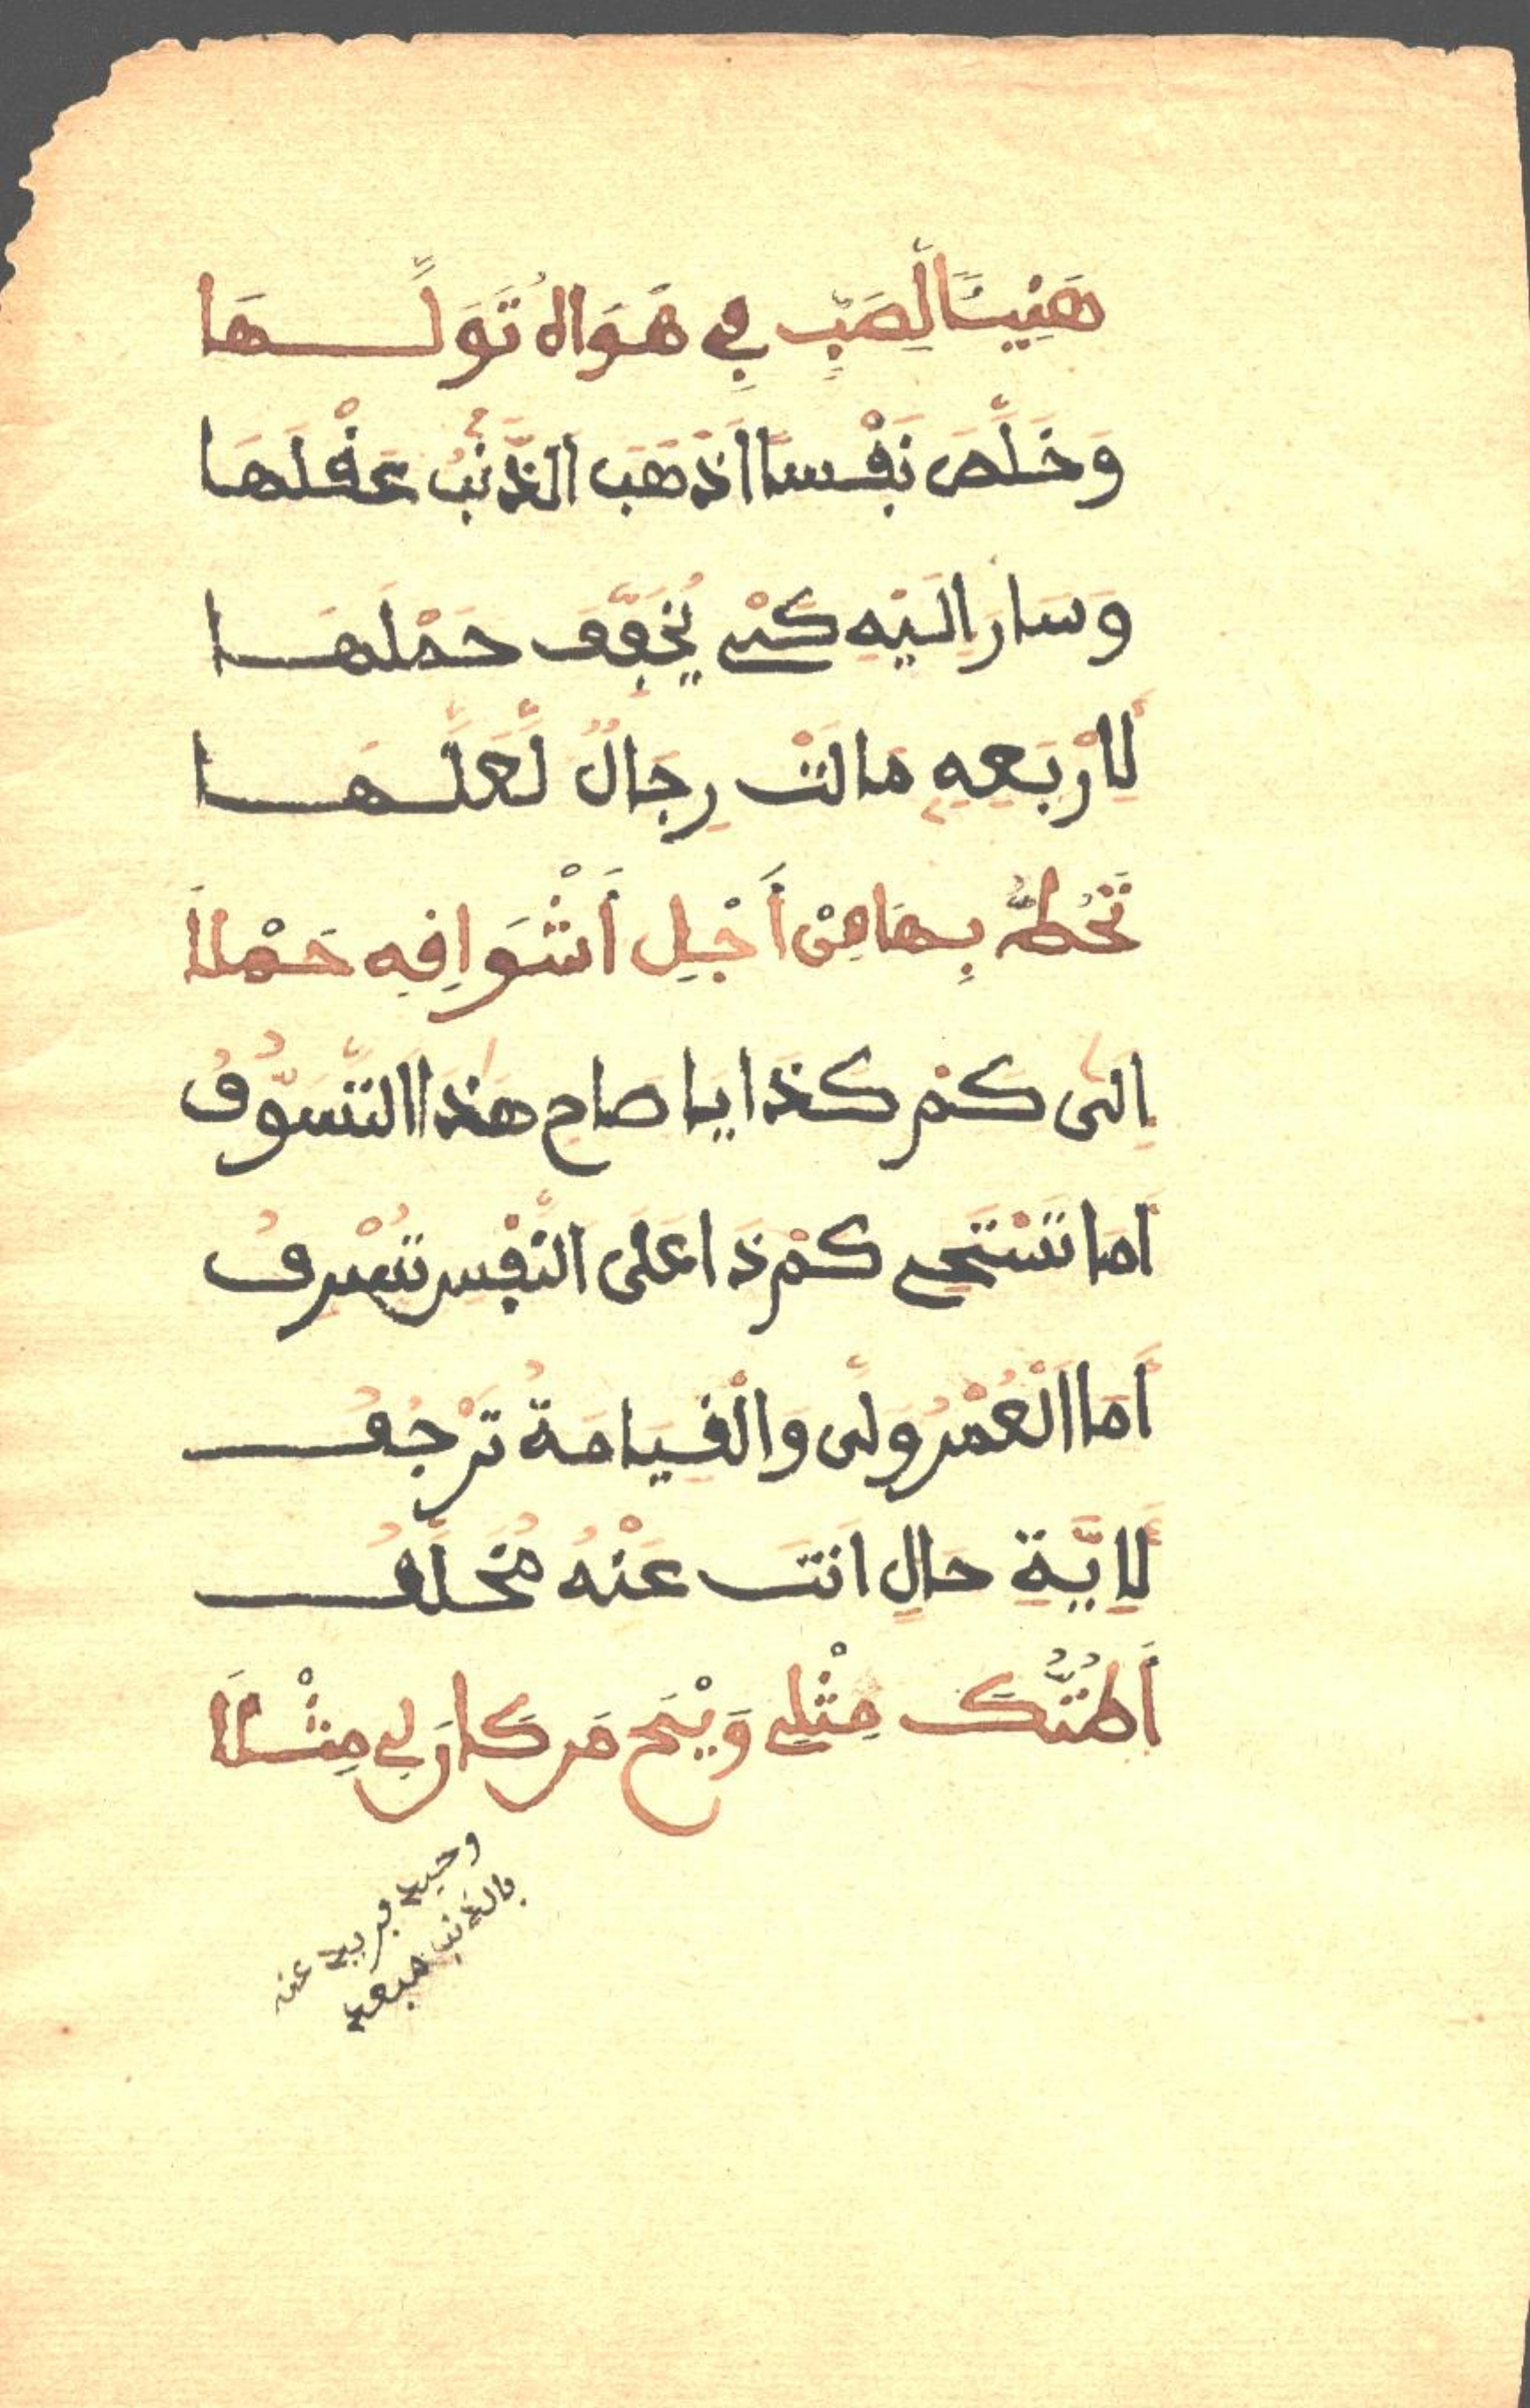 هَنِيـًٔا لِّصَبٍّ فِي هَوَاهُ تَوَلَّــهَا
وَخَلَّصَ نَفْسًا اَذْهَبَ الذَّنْبُ عَقْلَهَا
وَسَارَ اِلَيْهِ كَيْ يُخَفِّفَ حَمْلَهَا
لِأَرْبَعِهِ مَالَتْ رِجَالٌ لَّعَلَّهَا
تَحُطُّ بِهَا مِنْ أَجْلِ أَشْوَاقِهِ حَمْلَا
اِلَى كَمْ كَذَا يَا صَاحِ هَذَا التَّسَوُّفُ
أَمَا تَسْتَحِي كَمْ ذَا عَلَى النَّفْسِ تُسْرِفُ
أَمَا الْعُمْرُ وَلَّى وَالْقِيَامَةُ تَرْجُفُ
لِأَيَّةِ حَالٍ اَنتَ عَنْهُ مُخَلَّفُ
أَظُنُّكَ مِثْلِي وَيْحَ مَن كَانَ لِي مِثْلَا
وحيد فريد عنه
بالذنب مبعد